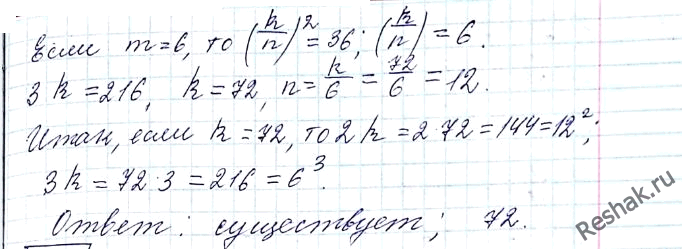 Если m=6, то (k/n)² = 36; (k/n) = 6.
3k = 216, k = 72, n = k/6 = 72/6 = 12.
Итак, если k = 72, то 2k = 2·72 = 144 = 12²;
3k = 72·3 = 216 = 6³.
Ответ: существует; 72.
Reshak.ru